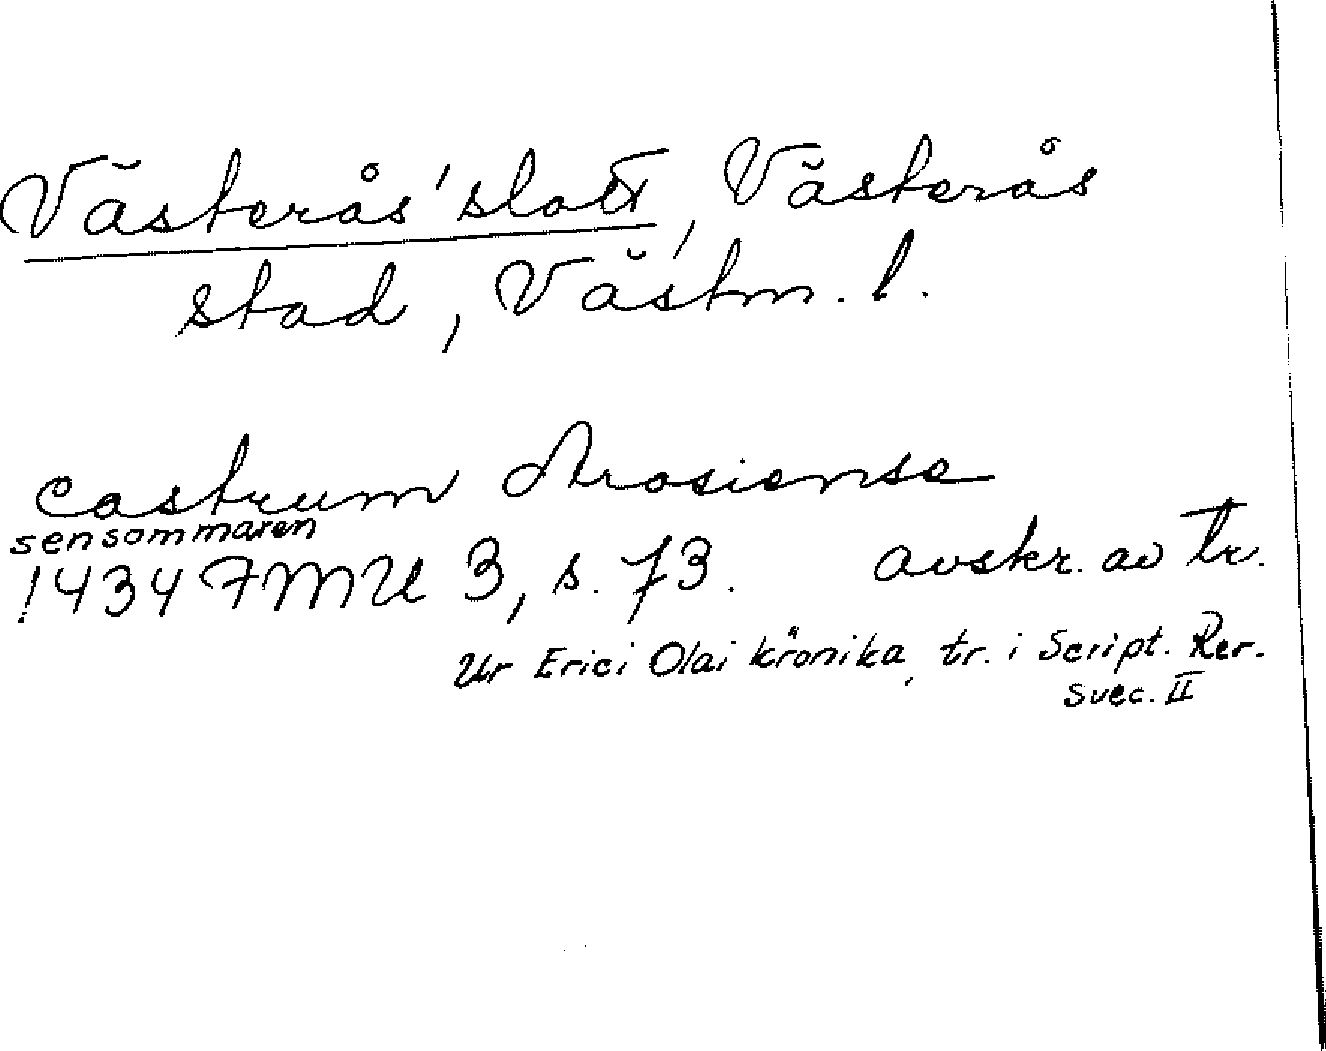 Västerås' slott, Västerås
stad, Västm. l.
castrum Arosiense
sensommaren
1434 FMU 3, s. 73. avskr. av Tr.
Ur Erici Olai krönika, tr. i Script. Rer.
Svec. II